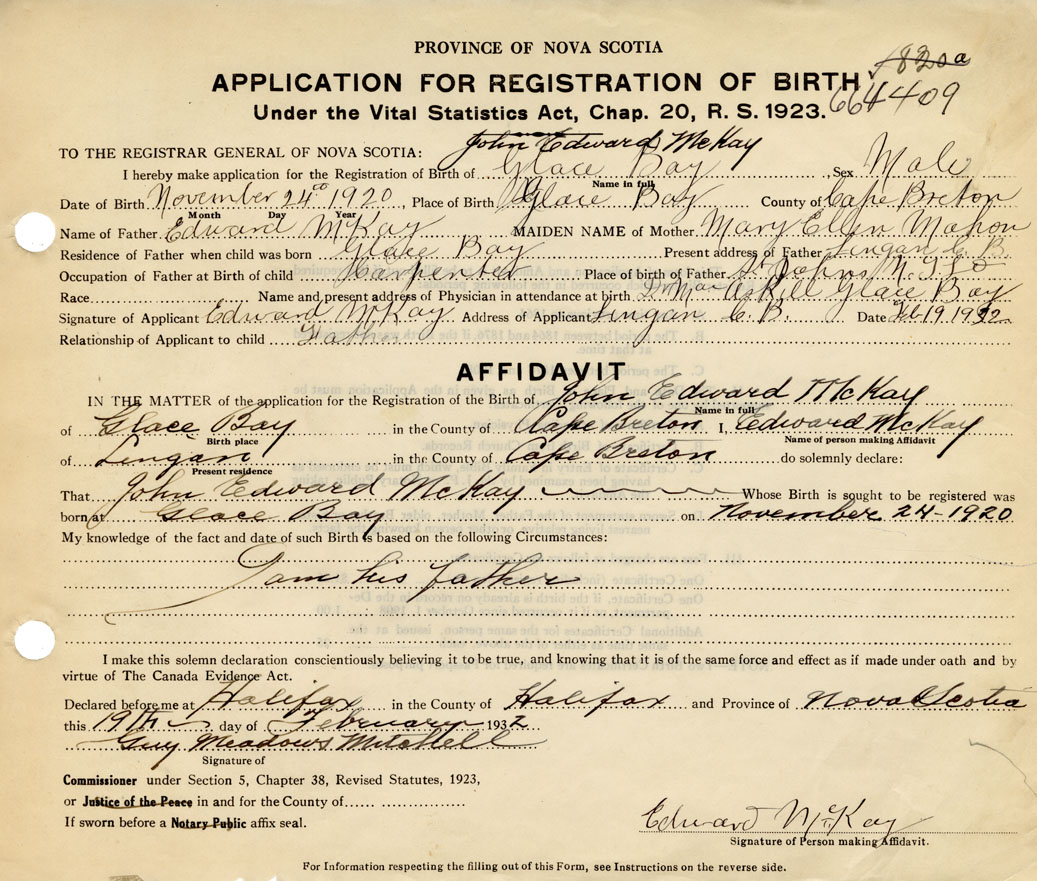 PROVINCE OF NOVA SCOTIA
1820a
APPLICATION FOR REGISTRATION OF BIRTH
664409
Under the Vital Statistics Act, Chap. 20, R. S. 1923.
John Edward McKay
TO THE REGISTRAR GENERAL OF NOVA SCOTIA:
I hereby make application for the Registration of Birth of Glace Bay Sex Male
Name in full
Date of Birth November 24 1920, Place of Birth Glace Bay County of Cape Breton
Month Day Year
Name of Father Edward McKay MAIDEN NAME of Mother Mary Ellen Mahon
Residence of Father when child was born Glace Bay Present address of Father Lingan C. B.
Occupation of Father at Birth of child Carpenter Place of birth of Father St Johns Nfld
Race Name and present address of Physician in attendance at birth Glace Bay
Signature of Applicant Edward McKay Address of Applicant Lingan C. B. Date Feb 19 1932
Relationship of Applicant to child Father
AFFIDAVIT
IN THE MATTER of the application for the Registration of the Birth of John Edward McKay
Name in full
of Glace Bay in the County of Cape Breton I, Edward McKay
Birth place Name of person making Affidavit
of Lingan in the County of Cape Breton do solemnly declare:
Present residence
That John Edward McKay Whose Birth is sought to be registered was
born at Glace Bay on November 24-1920
My knowledge of the fact and date of such Birth is based on the following Circumstances:
I am his father
I make this solemn declaration conscientiously believing it to be true, and knowing that it is of the same force and effect as if made under oath and by
virtue of The Canada Evidence Act.
Declared before me at Halifax in the County of Halifax and Province of Nova Scotia
this 19th day of February 1932
Guy Meadows Mitchell
Signature of
Commissioner under Section 5, Chapter 38, Revised Statutes, 1923,
or Justice of the Peace in and for the County of
If sworn before a Notary Public affix seal.
Edward McKay
Signature of Person making Affidavit.
For Information respecting the filling out of this Form, see Instructions on the reverse side.